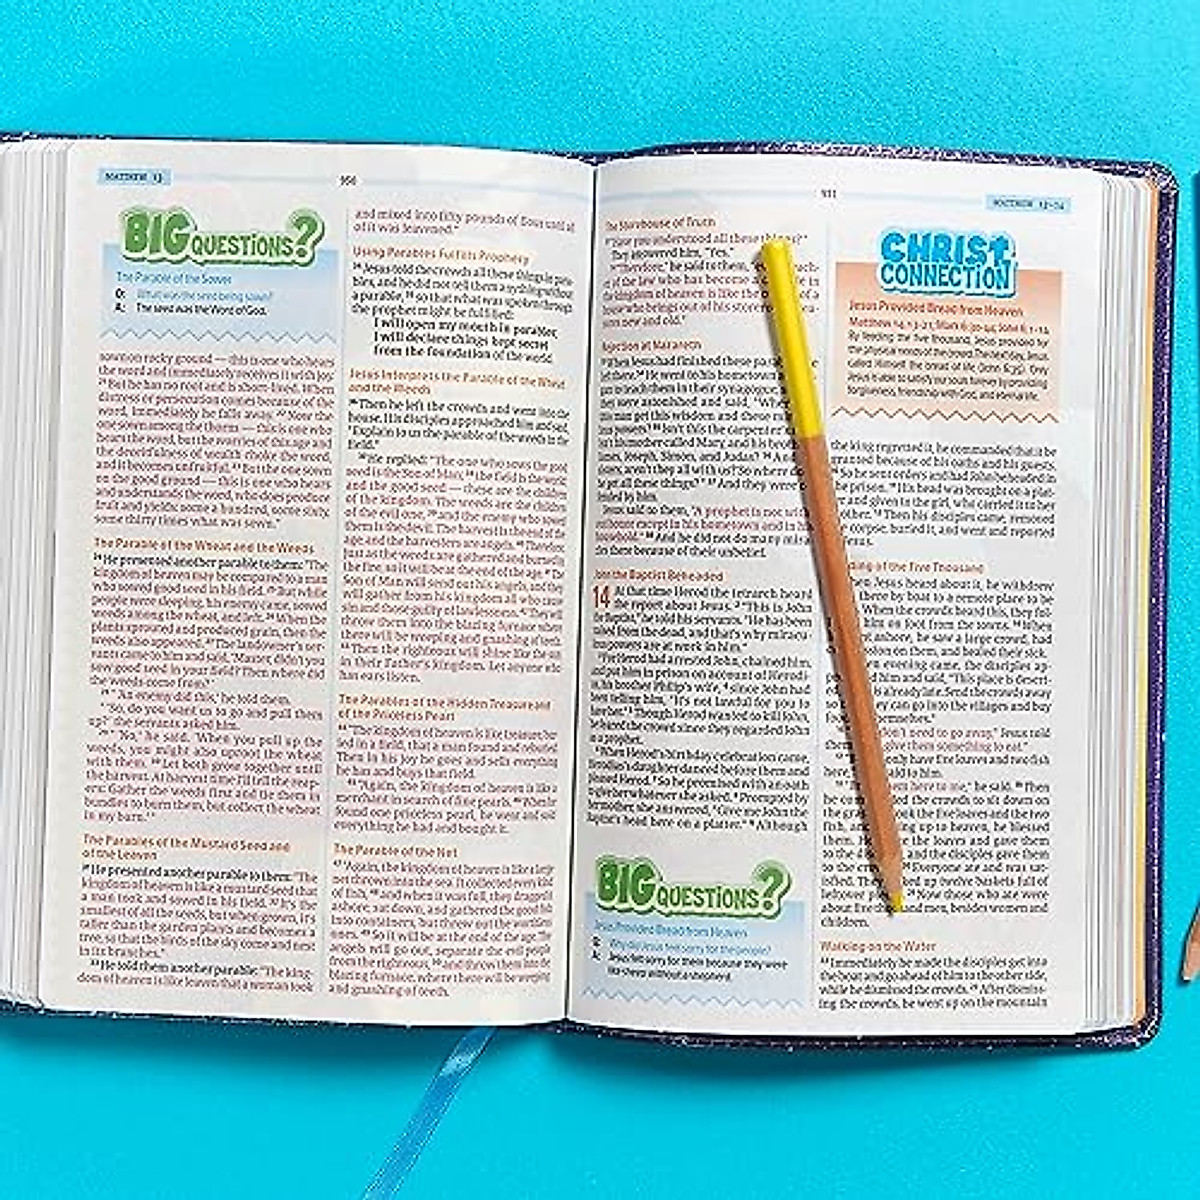 MATTHEW 13
930
BIG QUESTIONS?
The Parable of the Sower
Q: What was the seed being sown?
A: The seed was the Word of God.
sown on rocky ground — this is one who hears
the word and immediately receives it with joy.
21 But he has no root and is short-lived. When
distress or persecution comes because of the
word, immediately he falls away. 22 Now the
one sown among the thorns — this is one who
hears the word, but the worries of this age and
the deceitfulness of wealth choke the word,
and it becomes unfruitful. 23 But the one sown
on the good ground — this is one who hears
and understands the word, who does produce
fruit and yields: some a hundred, some sixty,
some thirty times what was sown."
The Parable of the Wheat and the Weeds
24 He presented another parable to them: "The
kingdom of heaven may be compared to a man
who sowed good seed in his field. 25 But while
people were sleeping, his enemy came, sowed
weeds among the wheat, and left. 26 When the
plants sprouted and produced grain, then the
weeds also appeared. 27 The landowner's ser-
vants came to him and said, 'Master, didn't you
sow good seed in your field? Then where did
the weeds come from?'
28 "'An enemy did this,' he told them.
"'So, do you want us to go and pull them
up?' the servants asked him.
29 "'No,' he said. 'When you pull up the
weeds, you might also uproot the wheat
with them. 30 Let both grow together until
the harvest. At harvest time I'll tell the reap-
ers: Gather the weeds first and tie them in
bundles to burn them, but collect the wheat
in my barn.'"
The Parables of the Mustard Seed and
of the Leaven
31 He presented another parable to them: "The
kingdom of heaven is like a mustard seed that
a man took and sowed in his field. 32 It's the
smallest of all the seeds, but when grown, it's
taller than the garden plants and becomes a
tree, so that the birds of the sky come and nest
in its branches."
33 He told them another parable: "The king-
dom of heaven is like leaven that a woman took
and mixed into fifty pounds of flour until all
of it was leavened."
Using Parables Fulfills Prophecy
34 Jesus told the crowds all these things in para-
bles, and he did not tell them anything without
a parable, 35 so that what was spoken through
the prophet might be fulfilled:
I will open my mouth in parables;
I will declare things kept secret
from the foundation of the world.
Jesus Interprets the Parable of the Wheat
and the Weeds
36 Then he left the crowds and went into the
house. His disciples approached him and said,
"Explain to us the parable of the weeds in the
field."
37 He replied: "The one who sows the good
seed is the Son of Man; 38 the field is the world;
and the good seed — these are the children
of the kingdom. The weeds are the children
of the evil one, 39 and the enemy who sowed
them is the devil. The harvest is the end of the
age, and the harvesters are angels. 40 Therefore,
just as the weeds are gathered and burned in
the fire, so it will be at the end of the age. 41 The
Son of Man will send out his angels, and they
will gather from his kingdom all who cause
sin and those guilty of lawlessness. 42 They will
throw them into the blazing furnace where
there will be weeping and gnashing of teeth.
43 Then the righteous will shine like the sun
in their Father's kingdom. Let anyone who
has ears listen.
The Parables of the Hidden Treasure and
of the Priceless Pearl
44 "The kingdom of heaven is like treasure, bur-
ied in a field, that a man found and reburied.
Then in his joy he goes and sells everything
he has and buys that field.
45 "Again, the kingdom of heaven is like a
merchant in search of fine pearls. 46 When he
found one priceless pearl, he went and sold
everything he had and bought it.
The Parable of the Net
47 "Again, the kingdom of heaven is like a large
net thrown into the sea. It collected every kind
of fish, 48 and when it was full, they dragged it
ashore, sat down, and gathered the good fish
into containers, but threw out the worthless
ones. 49 So it will be at the end of the age. The
angels will go out, separate the evil people
from the righteous, 50 and throw them into the
blazing furnace, where there will be weeping
and gnashing of teeth.
931
MATTHEW 13–14
The Storehouse of Truth
"Have you understood all these things?"
They answered him, "Yes."
"Therefore," he said to them,
of the law who has become a
the kingdom of heaven is like the of a
who brings out of his
new and old."
Rejection at Nazareth
When Jesus had finished these
there. 54 He went to his hometown
to teach them in their synagogue,
were astonished and said,
this man get this wisdom and these
powers? 55 Isn't this the carpenter's
Isn't his mother called Mary, and his
James, Joseph, Simon, and Judas?
aren't they all with us? So where
he get all these things?" 57 And they were
by him.
Jesus said to them, "A prophet is not
except in his hometown and in
household." 58 And he did not do many
there because of their unbelief.
John the Baptist Beheaded
14 At that time Herod the tetrarch heard
the report about Jesus. 2 "This is John
the Baptist," he told his servants. "He has been
raised from the dead, and that's why miracu-
powers are at work in him."
For Herod had arrested John, chained him,
and put him in prison on account of Herodi-
his brother Philip's wife, 4 since John had
been telling him, "It's not lawful for you to
her." 5 Though Herod wanted to kill John,
feared the crowd since they regarded John
a prophet.
When Herod's birthday celebration came,
Herodias's daughter danced before them and
pleased Herod. 7 So he promised with an oath
to give her whatever she asked. 8 Prompted by
her mother, she answered, "Give me John the
Baptist's head here on a platter." 9 Although
BIG QUESTIONS?
Jesus Provided Bread from Heaven
Q: Why did Jesus feel sorry for the people?
A: Jesus felt sorry for them because they were
like sheep without a shepherd.
CHRIST CONNECTION
Jesus Provided Bread from Heaven
Matthew 14:13-21; Mark 6:30-44; John 6:1-14
By feeding the five thousand, Jesus provided for
the physical needs of the crowd. The next day, Jesus
called Himself the bread of life (John 6:35). Only
Jesus is able to satisfy our souls forever by providing
forgiveness, friendship with God, and eternal life.
the king regretted it, he commanded that it be
granted because of his oaths and his guests.
So he sent orders and had John beheaded in
the prison. 11 His head was brought on a plat-
and given to the girl, who carried it to her
12 Then his disciples came, removed
corpse, buried it, and went and reported
Jesus.
of the Five Thousand
Jesus heard about it, he withdrew
there by boat to a remote place to be
When the crowds heard this, they fol-
him on foot from the towns. 14 When
ashore, he saw a large crowd, had
on them, and healed their sick.
evening came, the disciples ap-
him and said, "This place is desert-
already late. Send the crowds away
can go into the villages and buy
themselves."
need to go away," Jesus told
give them something to eat."
only have five loaves and two fish
here," said to him.
here to me," he said. 19 Then
the crowds to sit down on
the took the five loaves and the two
fish, and up to heaven, he blessed
them. He the loaves and gave them
to the and the disciples gave them
to the Everyone ate and was sat-
isfied. They up twelve baskets full of
leftover 21 Now those who ate were
about five men, besides women and
children.
Walking on the Water
22 Immediately he made the disciples get into
the boat and go ahead of him to the other side,
while he dismissed the crowds. 23 After dismiss-
ing the crowds, he went up on the mountain